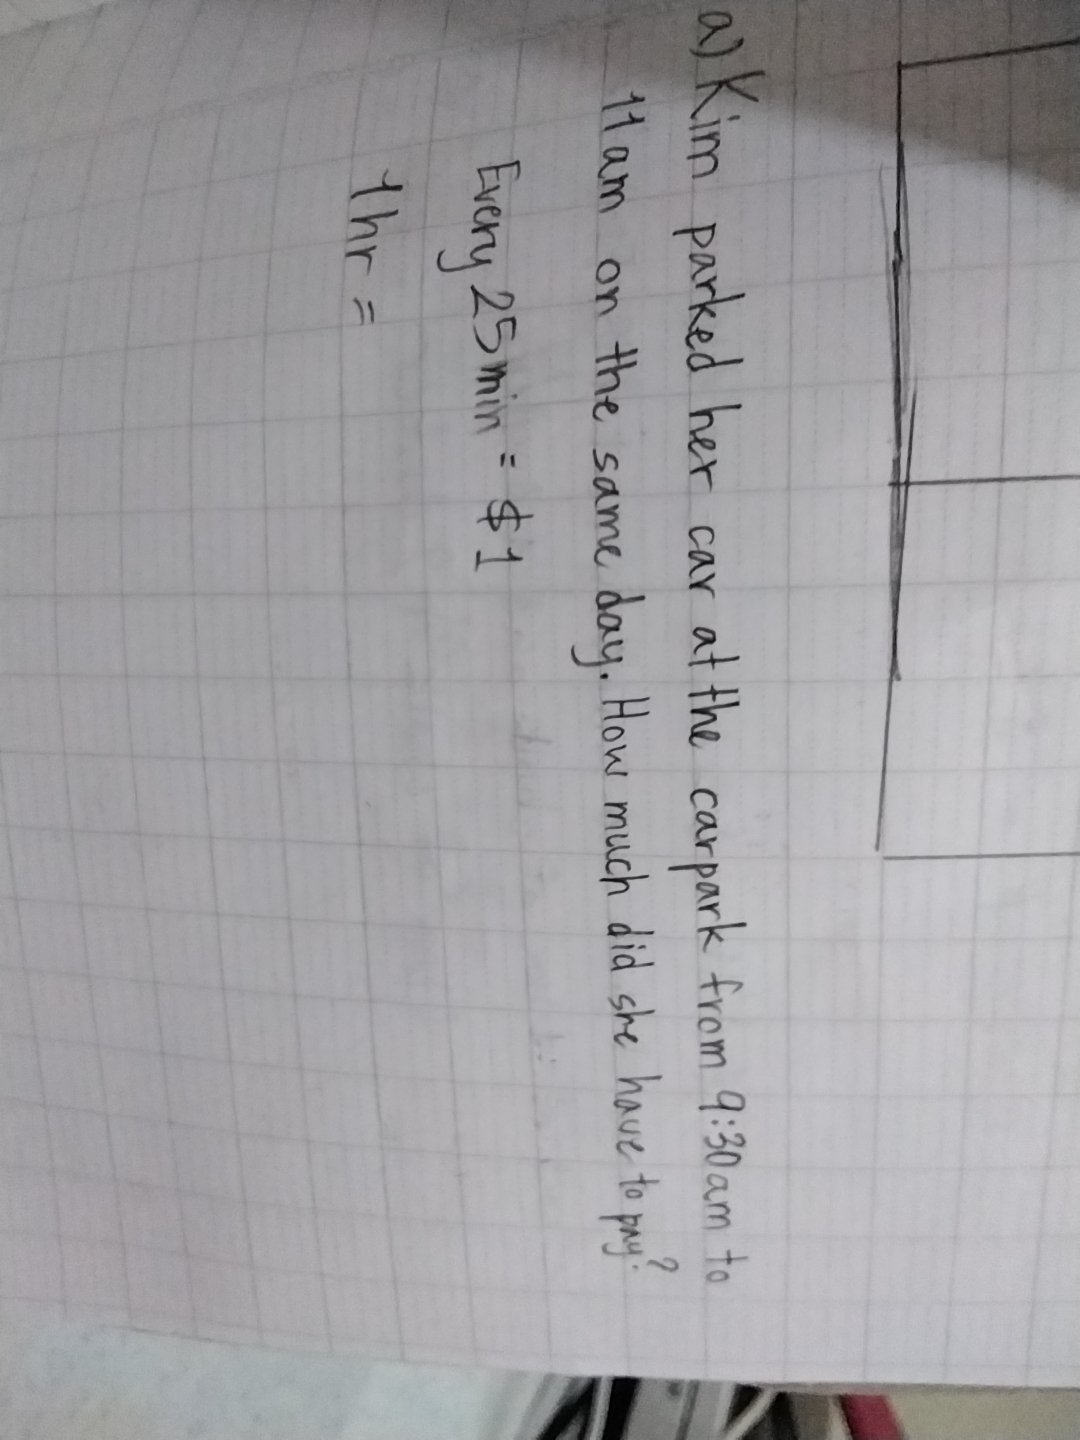 a) Kim parked her car at the carpark from 9:30am to
11am on the same day. How much did she have to pay?
Every 25min = $1
1hr =